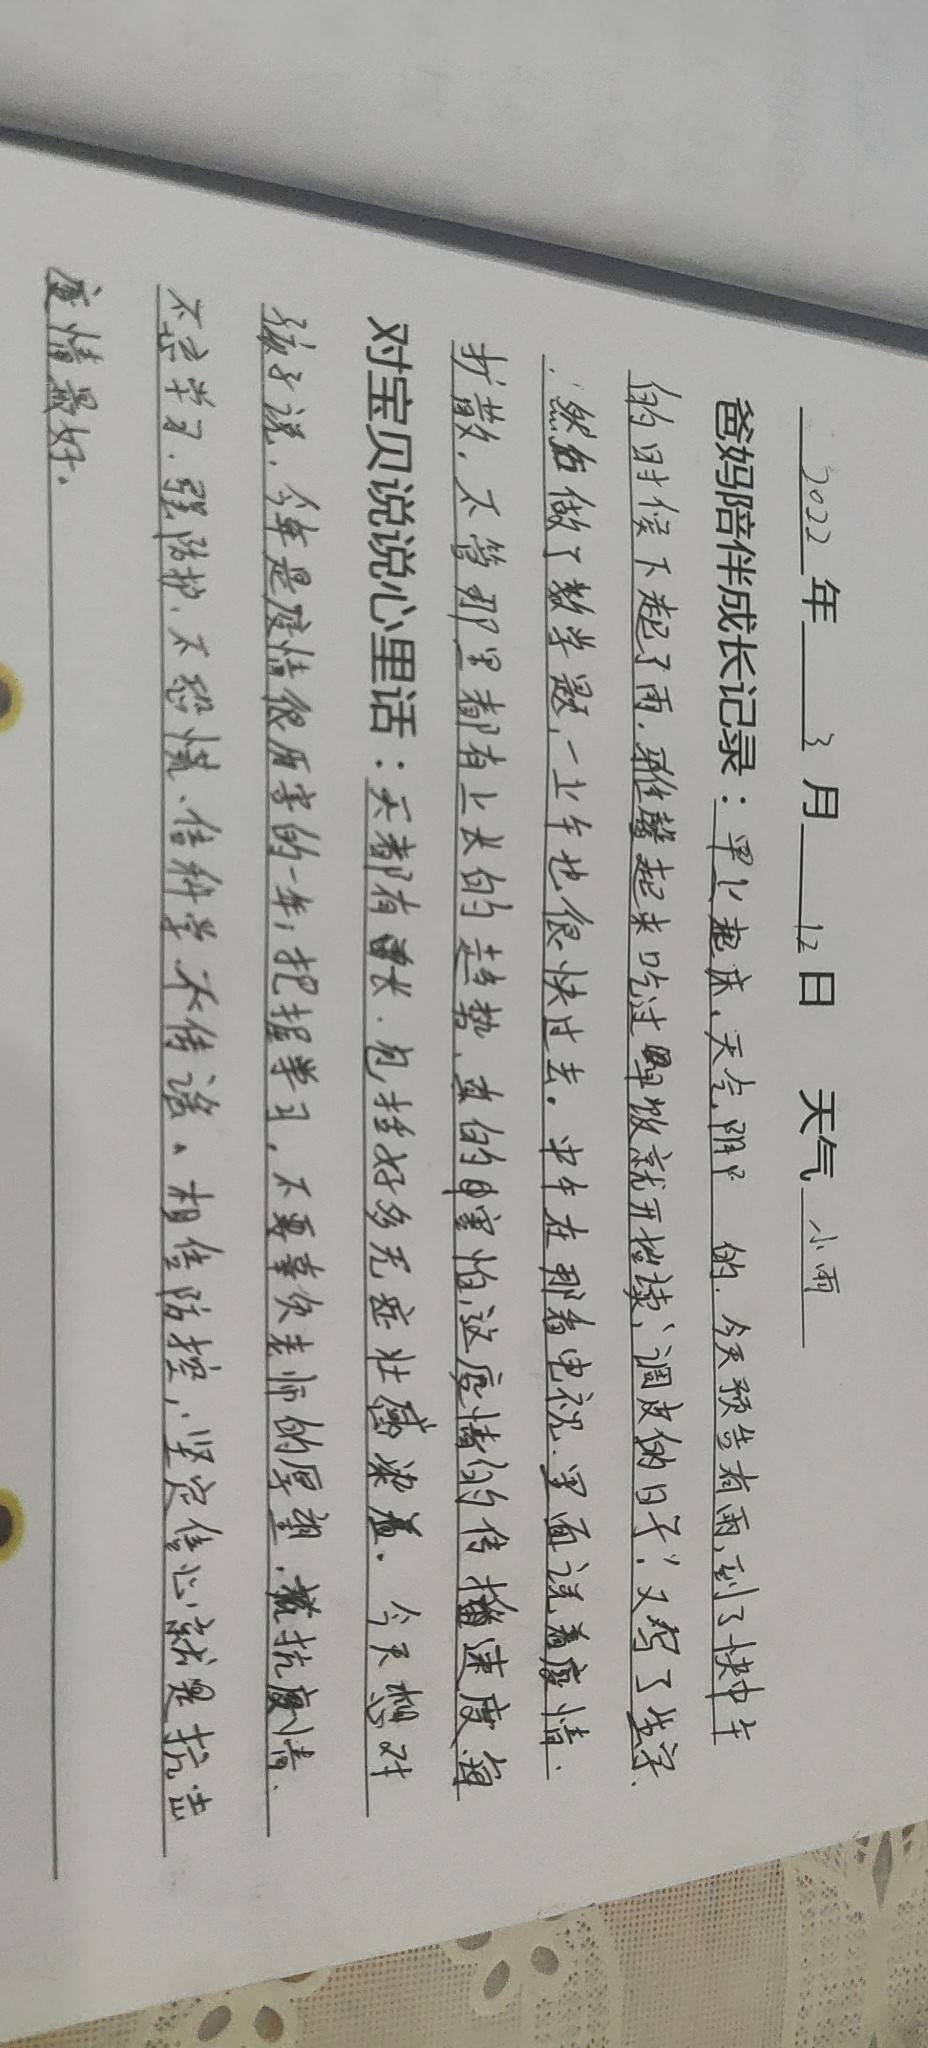 2022年3月12日 天气 小雨
爸妈陪伴成长记录：早上起床，天气阴 的．今天预告有雨，到了快中午
的时候下起了雨．雅馨起来吃过早饭就开 读、调皮的日子．又写了生字．
然后做了数学题，一上午也很快过去．中午在那看电视．里面说着疫情．
扩散．不管那里都有上长的趋势．真的害怕，这疫情的传播速度每
对宝贝说说心里话：天都有 长．包括好多无症壮感染着．今天想对
孩子说．今年是疫情很历害的一年，把握学习．不要辜负老师的厚望． 抗疫情．
不忘学习．强防护．不恐慌、信科学不传谣．相信防控，坚定信心．就是抗击
疫情最好．